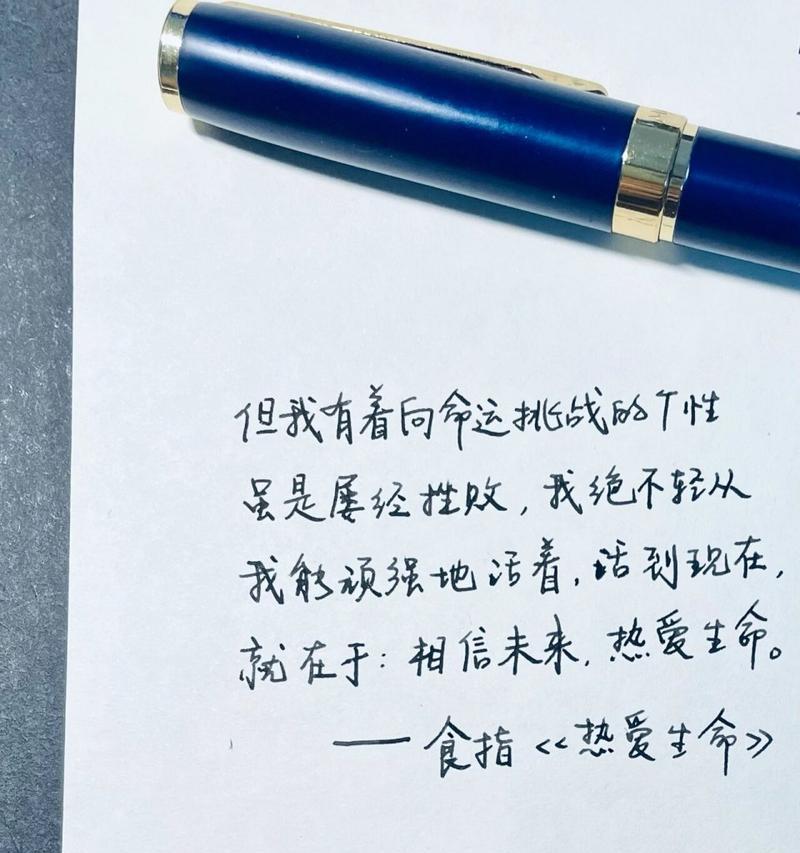 但我有着向命运挑战的个性
虽是屡经挫败，我绝不轻从
我能顽强地活着，活到现在，
就在于：相信未来，热爱生命。
——食指《热爱生命》